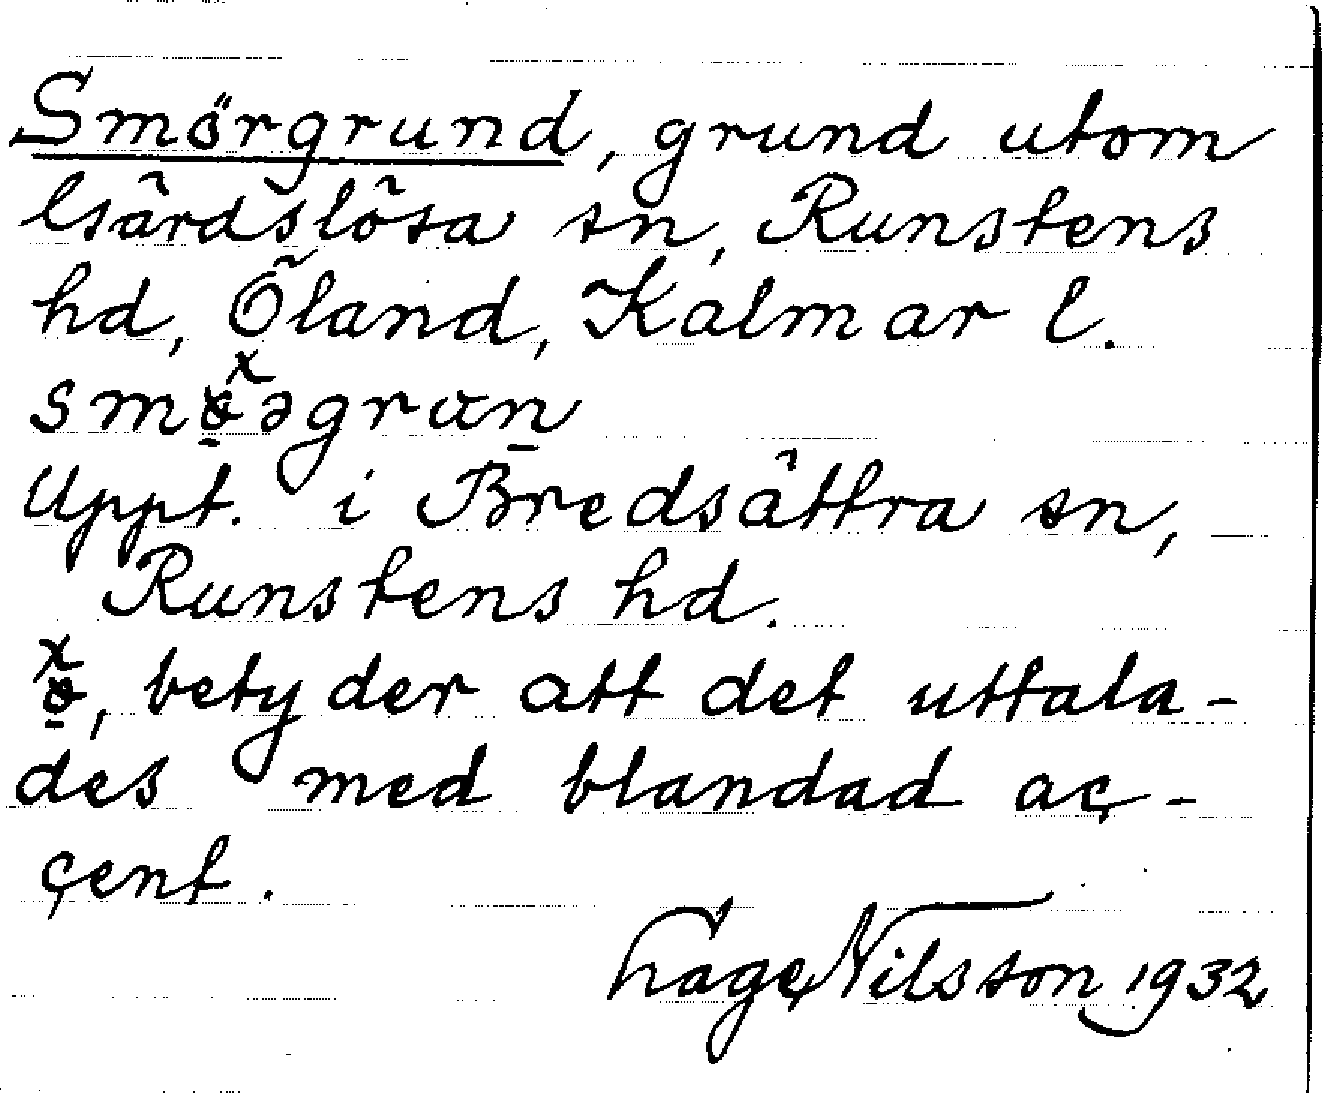 Smörgrund, grund utom
Gärdslösa sn, Runstens
hd, Öland, Kalmar l.
Uppt. i Bredsättra sn,
Runstens hd.
betyder att det uttala-
des med blandad ac-
cent.
Hage Nilsson 1932